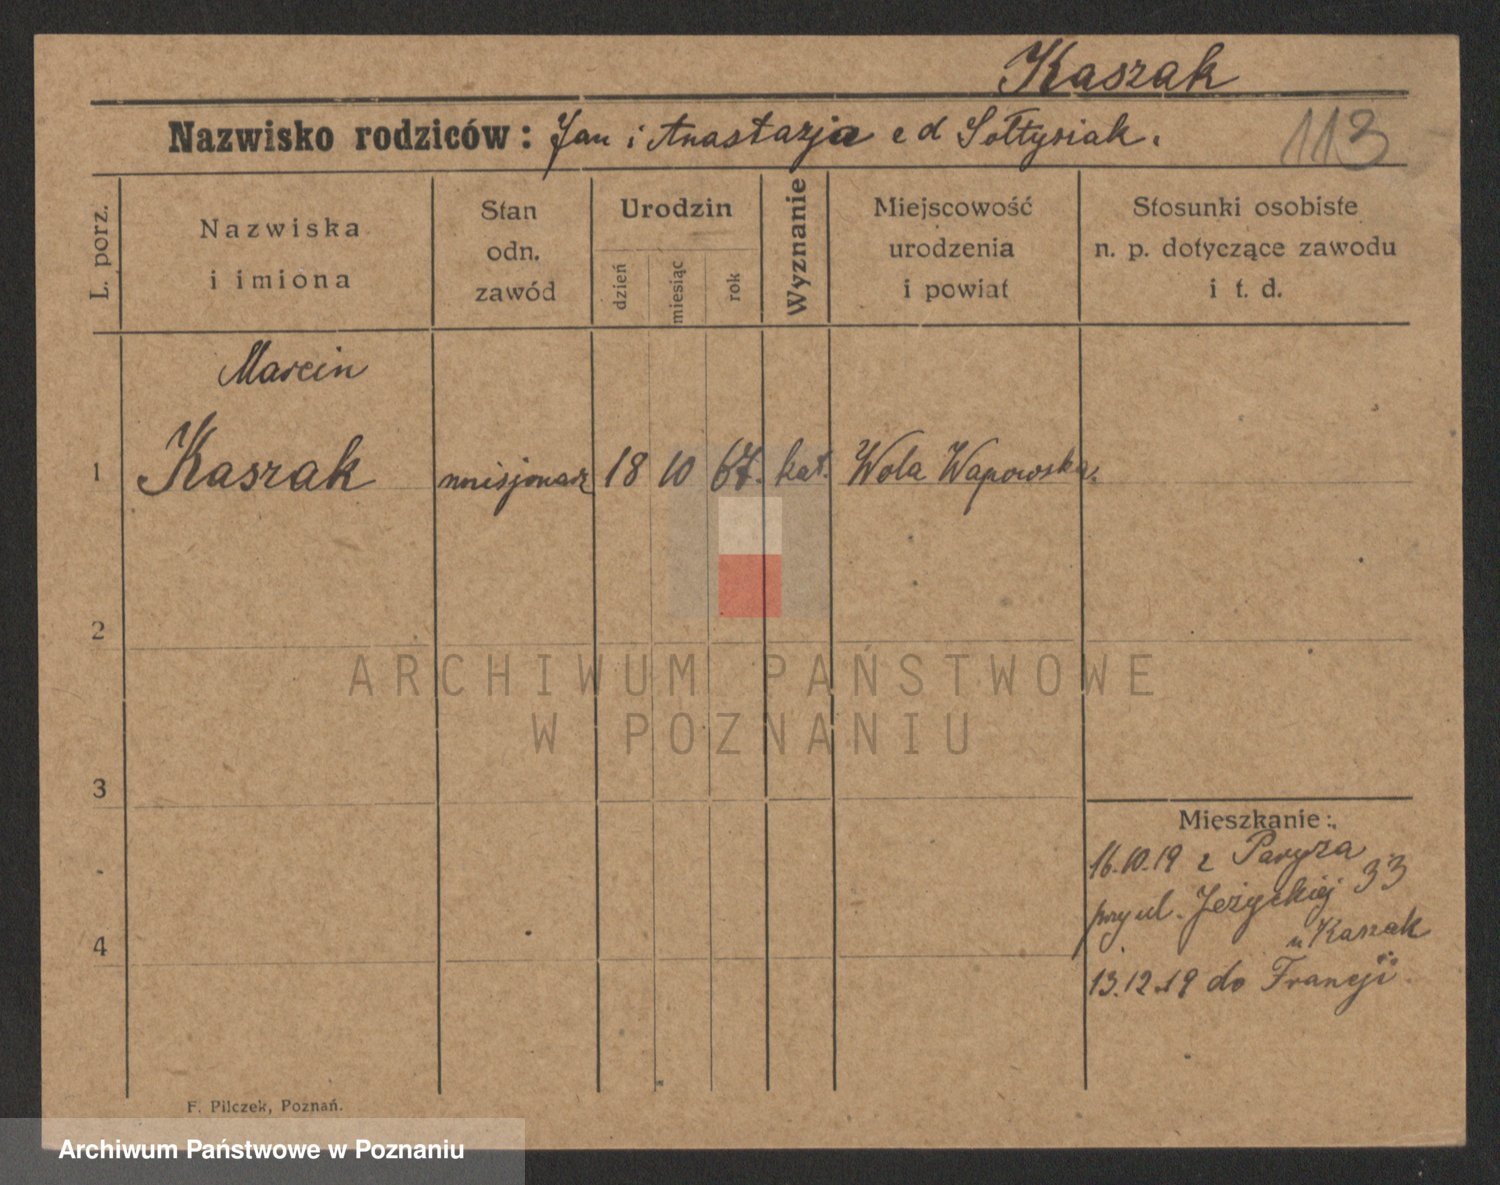 Kaszak
Nazwisko rodziców: Jan i Anastazja e d Sołtysiak.
113
L. porz.
Nazwiska
i imiona
Stan
odn.
zawód
Urodzin
dzień
miesiąc
rok
Wyznanie
Miejscowość
urodzenia
i powiat
Stosunki osobiste
n. p. dotyczące zawodu
i t. d.
Marcin
1 Kaszak misjonarz 18 10 67. kat. Wola Wapowska.
2
ARCHIWUM PAŃSTWOWE
W POZNANIU
3
Mieszkanie:
16.10.19 z Paryża
przy ul. Jeżyckiej 33
u Kaszak
4
13.12.19 do Francji.
F. Pilczek, Poznań.
Archiwum Państwowe w Poznaniu